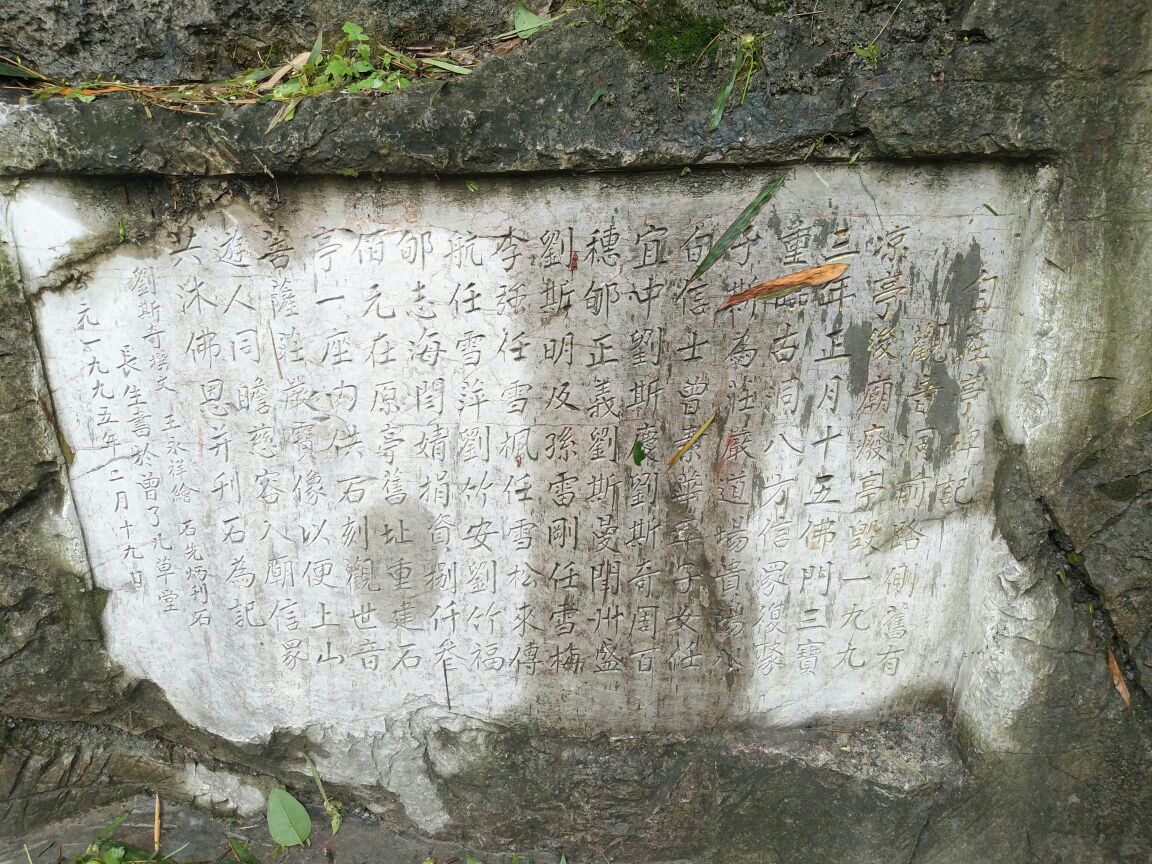 自在亭碑記
觀音洞前路側舊有
凉亭後廟廢亭毀一九九
三年正月十五佛門三寶
重 古洞八方信眾復聚
于 為莊嚴道場貴
伯信士曾素華 子女任
宜中劉斯慶劉斯奇周百
穗邹正義劉斯曼 盛
劉斯明反孫雪剛任雪梅
李強任雪楓任雪松來傳
航任雪萍劉竹安劉竹福
邹志海閆婧捐資捌仟叁
伯元在原亭舊址重建石
亭一座内供石刻觀世音
菩薩莊嚴寶像以便上山
遊人同瞻慈容入廟信眾
共沐佛恩并刊石為記
劉斯奇撰文 王永祥繪 石先炳刊石
長生書於曾了凡草堂
元一九九五年二月十九日